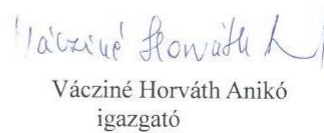 Vácziné Horváth A
Vácziné Horváth Anikó
igazgató